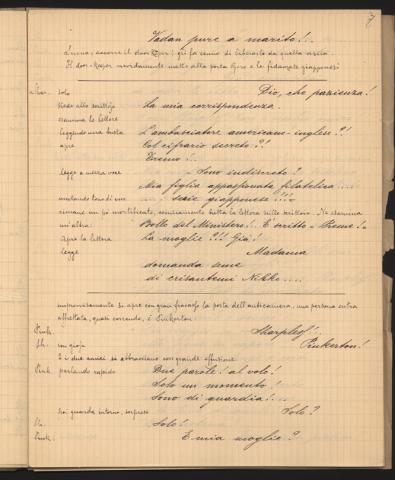 7
Vadan pure a marito!..
suona, accorre il door-keeper; gli fa cenno di liberarlo da quella visita.
Il door-keeper mordamente mette alla porta Goro e le fidanzate giapponesi
Shar. solo Dio, che pazienza!
siede allo scrittoio La mia corrispondenza.
esamina le lettere
leggendo una busta L'ambasciatore americano-inglese?!
apre Col cifrario secreto?!
Tremo!..
legge a mezza voce "Sono indiscreto?
Mia figlia appassionata filatelica....
mutando tono di voce serie giapponese!!!"
rimane un pò mortificato, nervosamente butta la lettera sullo scrittoio. Ne esamina
un'altra: Bolle del Ministero!.. È scritto "Preme!"
Apre la lettera La moglie?!! Già!
legge Madama
domanda seme
di crisantemi Nikko....
improvvisamente si apre con gran fracasso la porta dell'anticamera, una persona entra
affrettata, quasi correndo, è Pinkerton:
Pink. Sharpless!..
Sh. con gioja Pinkerton!
E i due amici si abbracciano con grande effusione
Pink. parlando rapido Due parole! al volo!
Solo un momento!
Sono di guardia!..
poi guarda intorno, sorpreso Solo?
Sh. Solo!
Pink. E mia moglie?